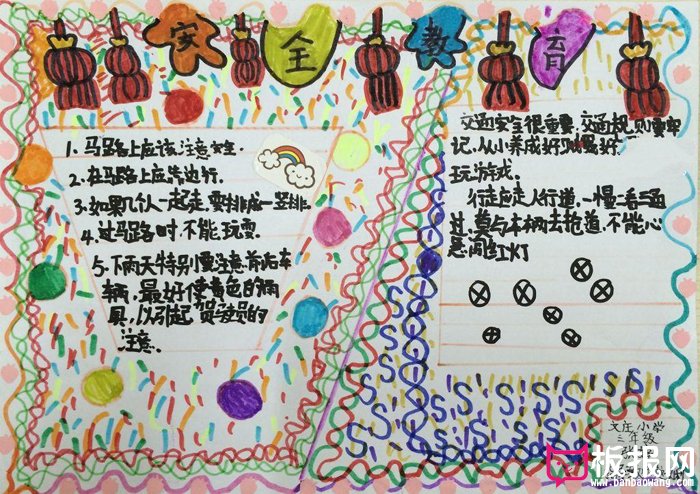 安全教育
1. 马路上应该注意安全.
2. 在马路上应靠边行.
3. 如果几个人一起走,要排成一竖排.
4. 过马路时,不能玩耍.
5. 下雨天特别要注意前后车
辆,最好使黄色的雨
具,以引起驾驶员的
注意.
交通安全很重要,交通规则要牢
记,从小养成好习惯,好
玩游戏.
行走应走人行道,一慢二看三通
过,莫与车辆去抢道.不能心
急闯红灯
文庄小学
三年级
板报网
www.banbaowang.com